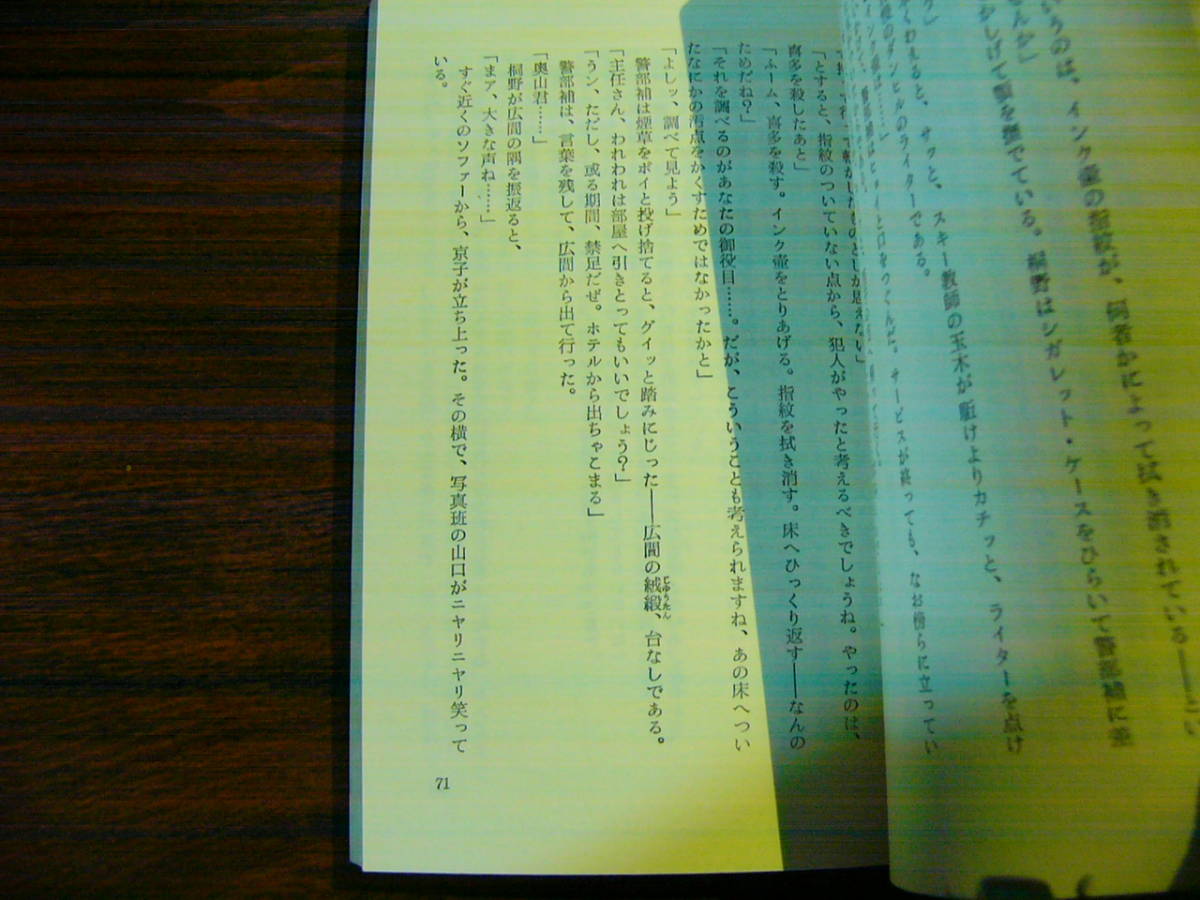 いうのは、インク壺の指紋が、何者かによって拭き消されている――とい
せんか」
かしげて顎を撫でている。桐野はシガレット・ケースをひらいて警部補に差
くわえると、サッと、スキー教師の玉木が駈けよりカチッと、ライターを点け
のダンヒルのライターである。
サービスが終っても、なお傍らに立ってい
「とすると、指紋のついていない点から、犯人がやったと考えるべきでしょうね。やったのは、
喜多を殺したあと」
「ふーム、喜多を殺す。インク壺をとりあげる。指紋を拭き消す。床へひっくり返す――なんの
ためだね?」
「それを調べるのがあなたの御役目……。だが、こういうことも考えられますね、あの床へつい
たなにかの汚点をかくすためではなかったかと」
「よしッ、調べて見よう」
警部補は煙草をポイと投げ捨てると、グイッと踏みにじった――広間の絨緞、台なしである。
じゅうたん
「主任さん、われわれは部屋へ引きとってもいいでしょう?」
「うン、ただし、或る期間、禁足だぜ。ホテルから出ちゃこまる」
警部補は、言葉を残して、広間から出て行った。
「奥山君……」
桐野が広間の隅を振返ると、
「まア、大きな声ね……」
すぐ近くのソファーから、京子が立ち上った。その横で、写真班の山口がニヤリニヤリ笑って
いる。
71